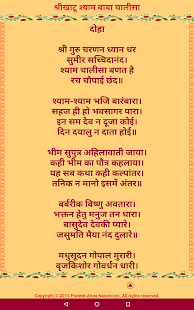 श्रीखाटू श्याम बाबा चालीसा
दोहा
श्री गुरु चरणन ध्यान धर
सुमीर सच्चिदानंद।
श्याम चालीसा बणत है
रच चौपाई छंद॥
श्याम-श्याम भजि बारंबारा।
सहज ही हो भवसागर पारा।
इन सम देव न दूजा कोई।
दिन दयालु न दाता होई॥
भीम सुपुत्र अहिलावाती जाया।
कही भीम का पौत्र कहलाया।
यह सब कथा कही कल्पांतर।
तनिक न मानो इसमें अंतर॥
बर्बरीक विष्णु अवतारा।
भक्तन हेतु मनुज तन धारा।
बासुदेव देवकी प्यारे।
जसुमति मैया नंद दुलारे॥
मधुसूदन गोपाल मुरारी।
वृजकिशोर गोवर्धन धारी।
Copyright © 2015 Prateek Anna Nandoroom. All rights reserved.